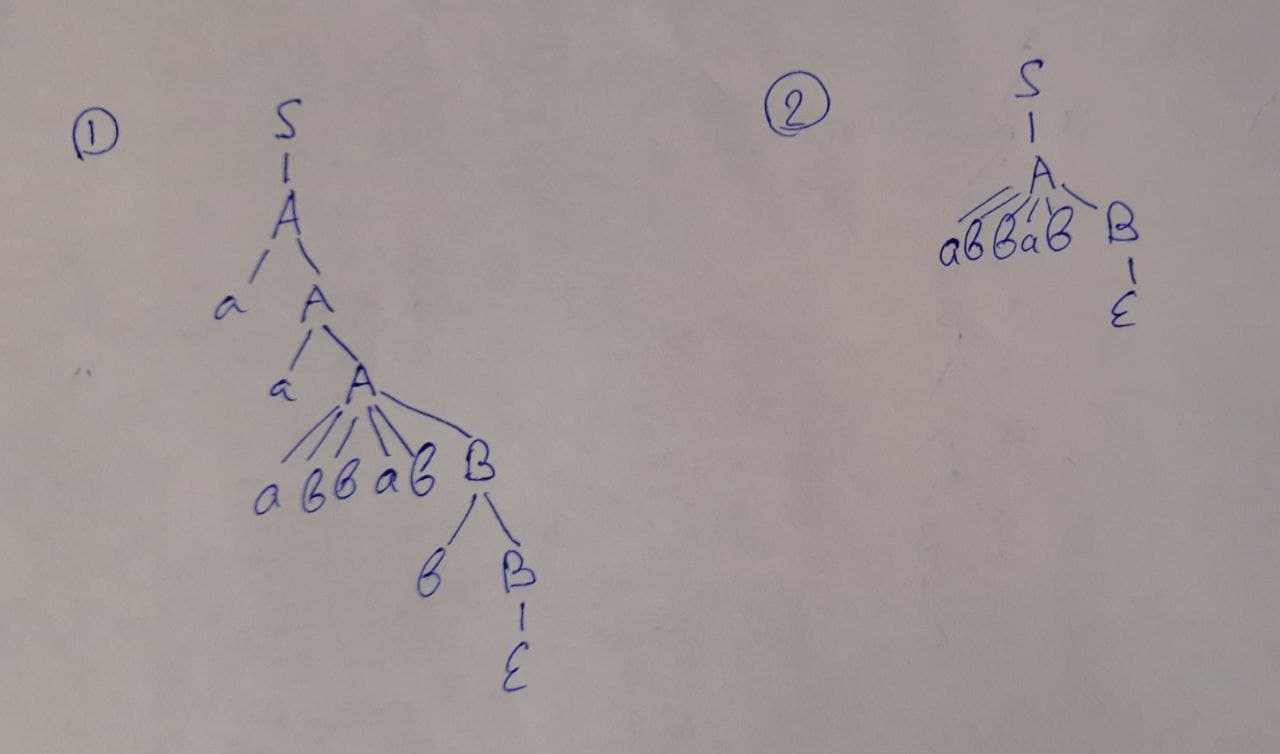 ① S
A
a A
a A
a b b a b B
b B
ε
② S
A
a b b a b B
ε